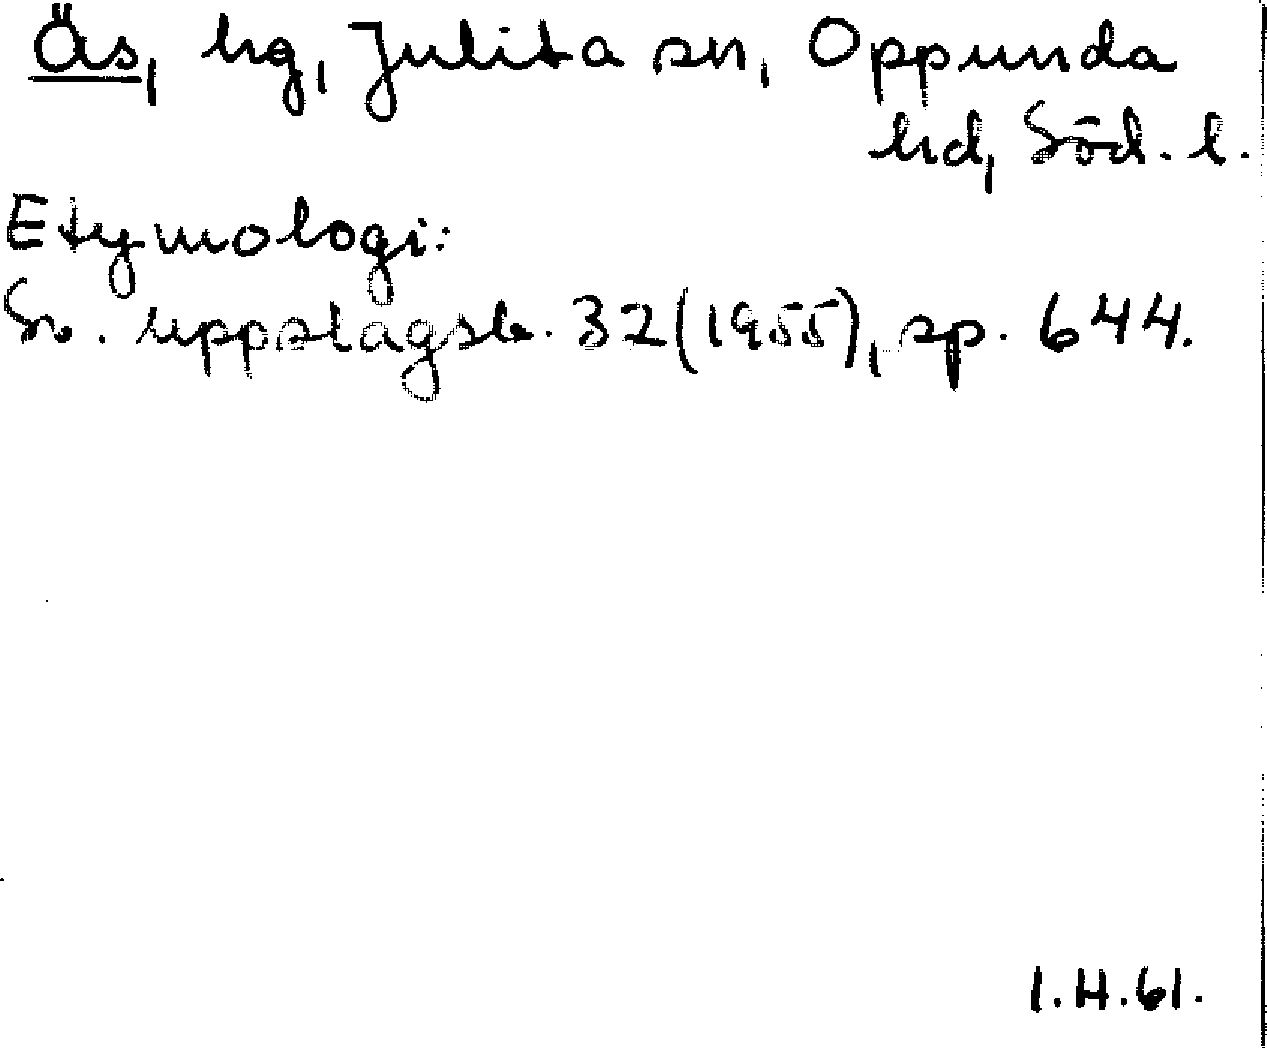 Äs, hg, Julita sn, Oppunda
hd, Söd. l.
Etymologi:
Sv. uppslagsb. 32 (1955), sp. 644.
I.H.61.